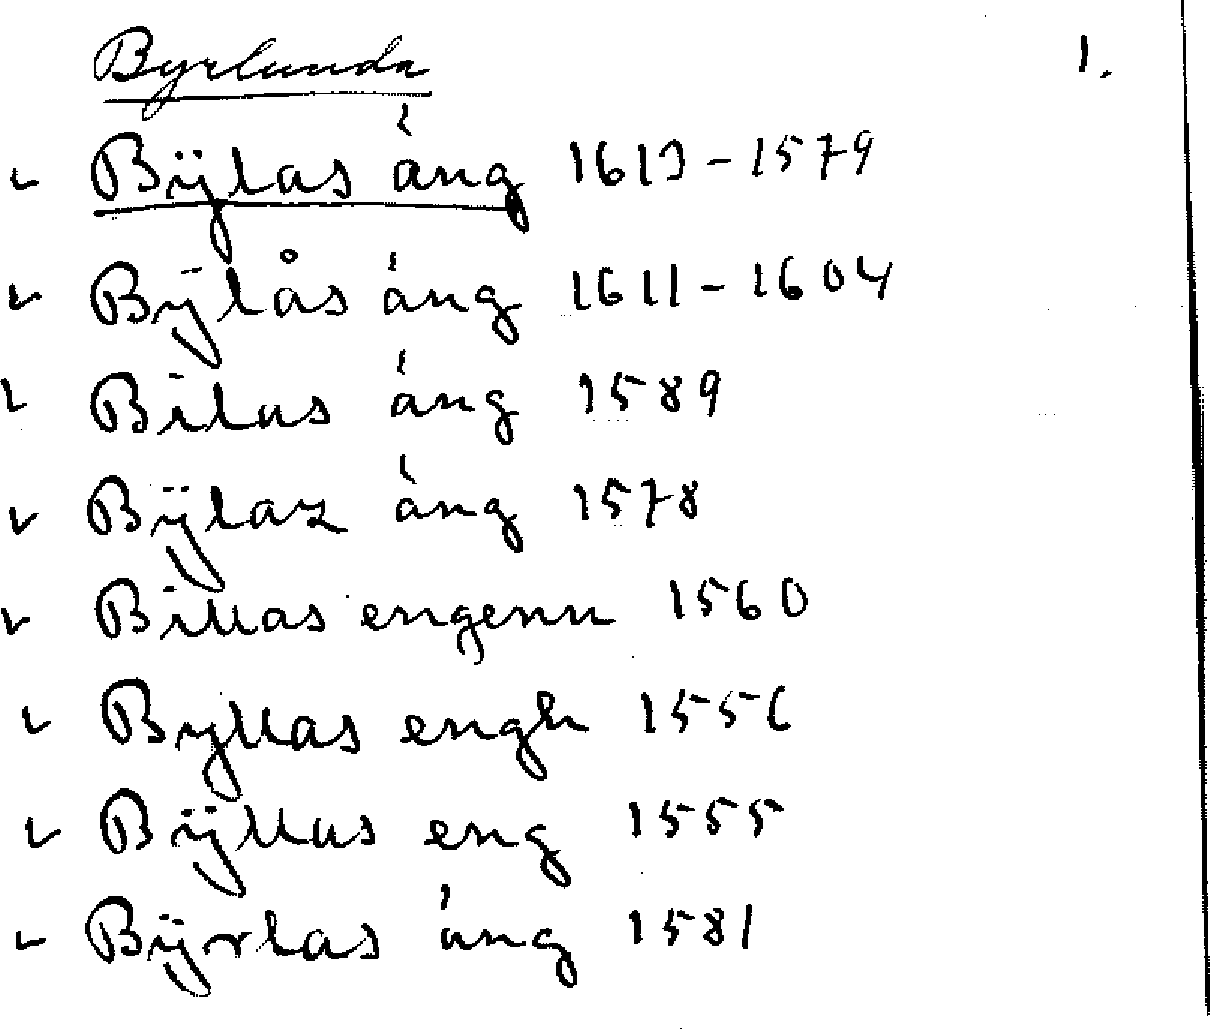 Byrlunda 1.
Bÿlas áng 1613-1579
Bÿlås áng 1611-1604
Bilas áng 1589
Bÿlaz áng 1578
Billas engenn 1560
Byllas engh 1556
Bÿllas eng 1555
Bÿrlas áng 1581